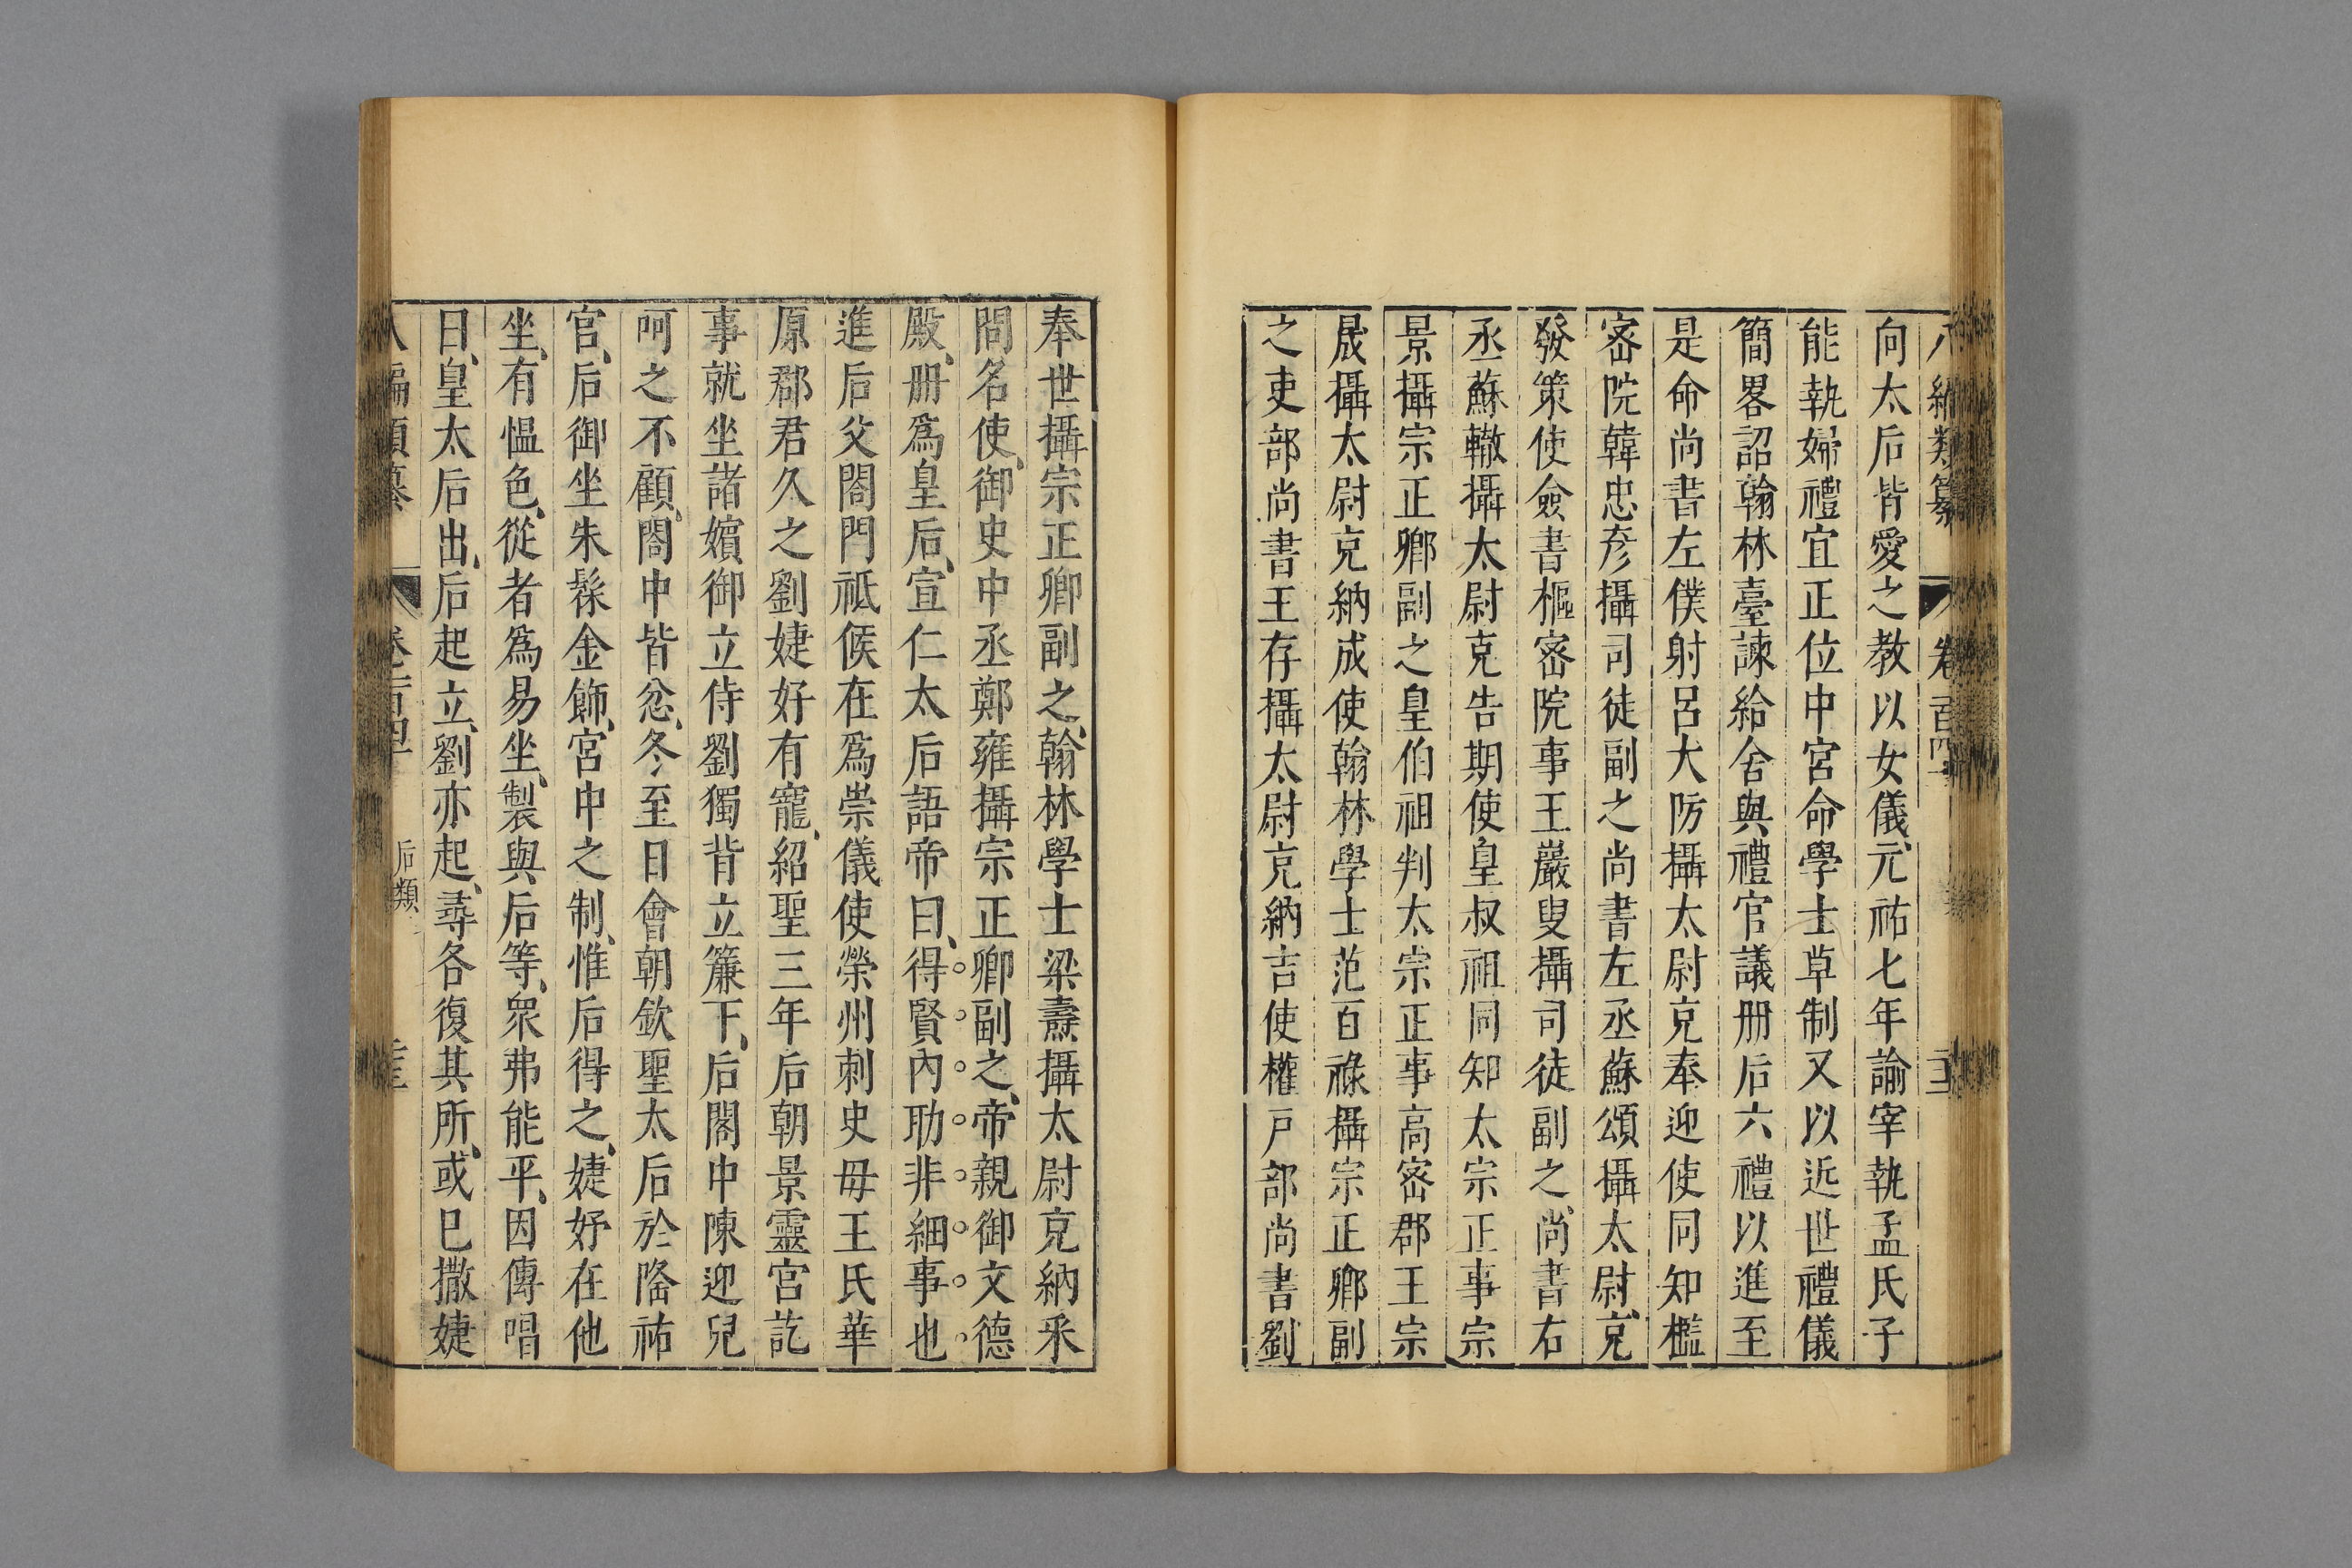 八編類纂 卷一百四十
向太后皆愛之教以女儀元祐七年諭宰執孟氏子
能執婦禮宜正位中宮命學士草制又以近世禮儀
簡畧詔翰林臺諫給舍與禮官議册后六禮以進至
是命尚書左僕射呂大防攝太尉充奉迎使同知樞
密院韓忠彥攝司徒副之尚書左丞蘇頌攝太尉充
發策使僉書樞密院事王巖叟攝司徒副之尚書右
丞蘇轍攝太尉充告期使皇叔祖同知太宗正事宗
景攝宗正卿副之皇伯祖判太宗正事高密郡王宗
晟攝太尉充納成使翰林學士范百祿攝宗正卿副
之吏部尚書王存攝太尉充納吉使權戶部尚書劉
奉世攝宗正卿副之翰林學士梁燾攝太尉充納采
問名使御史中丞鄭雍攝宗正卿副之帝親御文德
殿册爲皇后宣仁太后語帝曰得賢內助非細事也
進后父閤門祗候在爲崇儀使榮州刺史母王氏華
原郡君久之劉婕好有寵紹聖三年后朝景靈宮訖
事就坐諸嬪御立侍劉獨背立簾下后閣中陳迎兒
呵之不顧閤中皆忿冬至日會朝欽聖太后於隆祐
宮后御坐朱髹金飾宮中之制惟后得之婕妤在他
坐有慍色從者爲易坐製與后等衆弗能平因傳唱
曰皇太后出后起立劉亦起尋各復其所或已撤婕
八編類纂 卷一百四十 后類